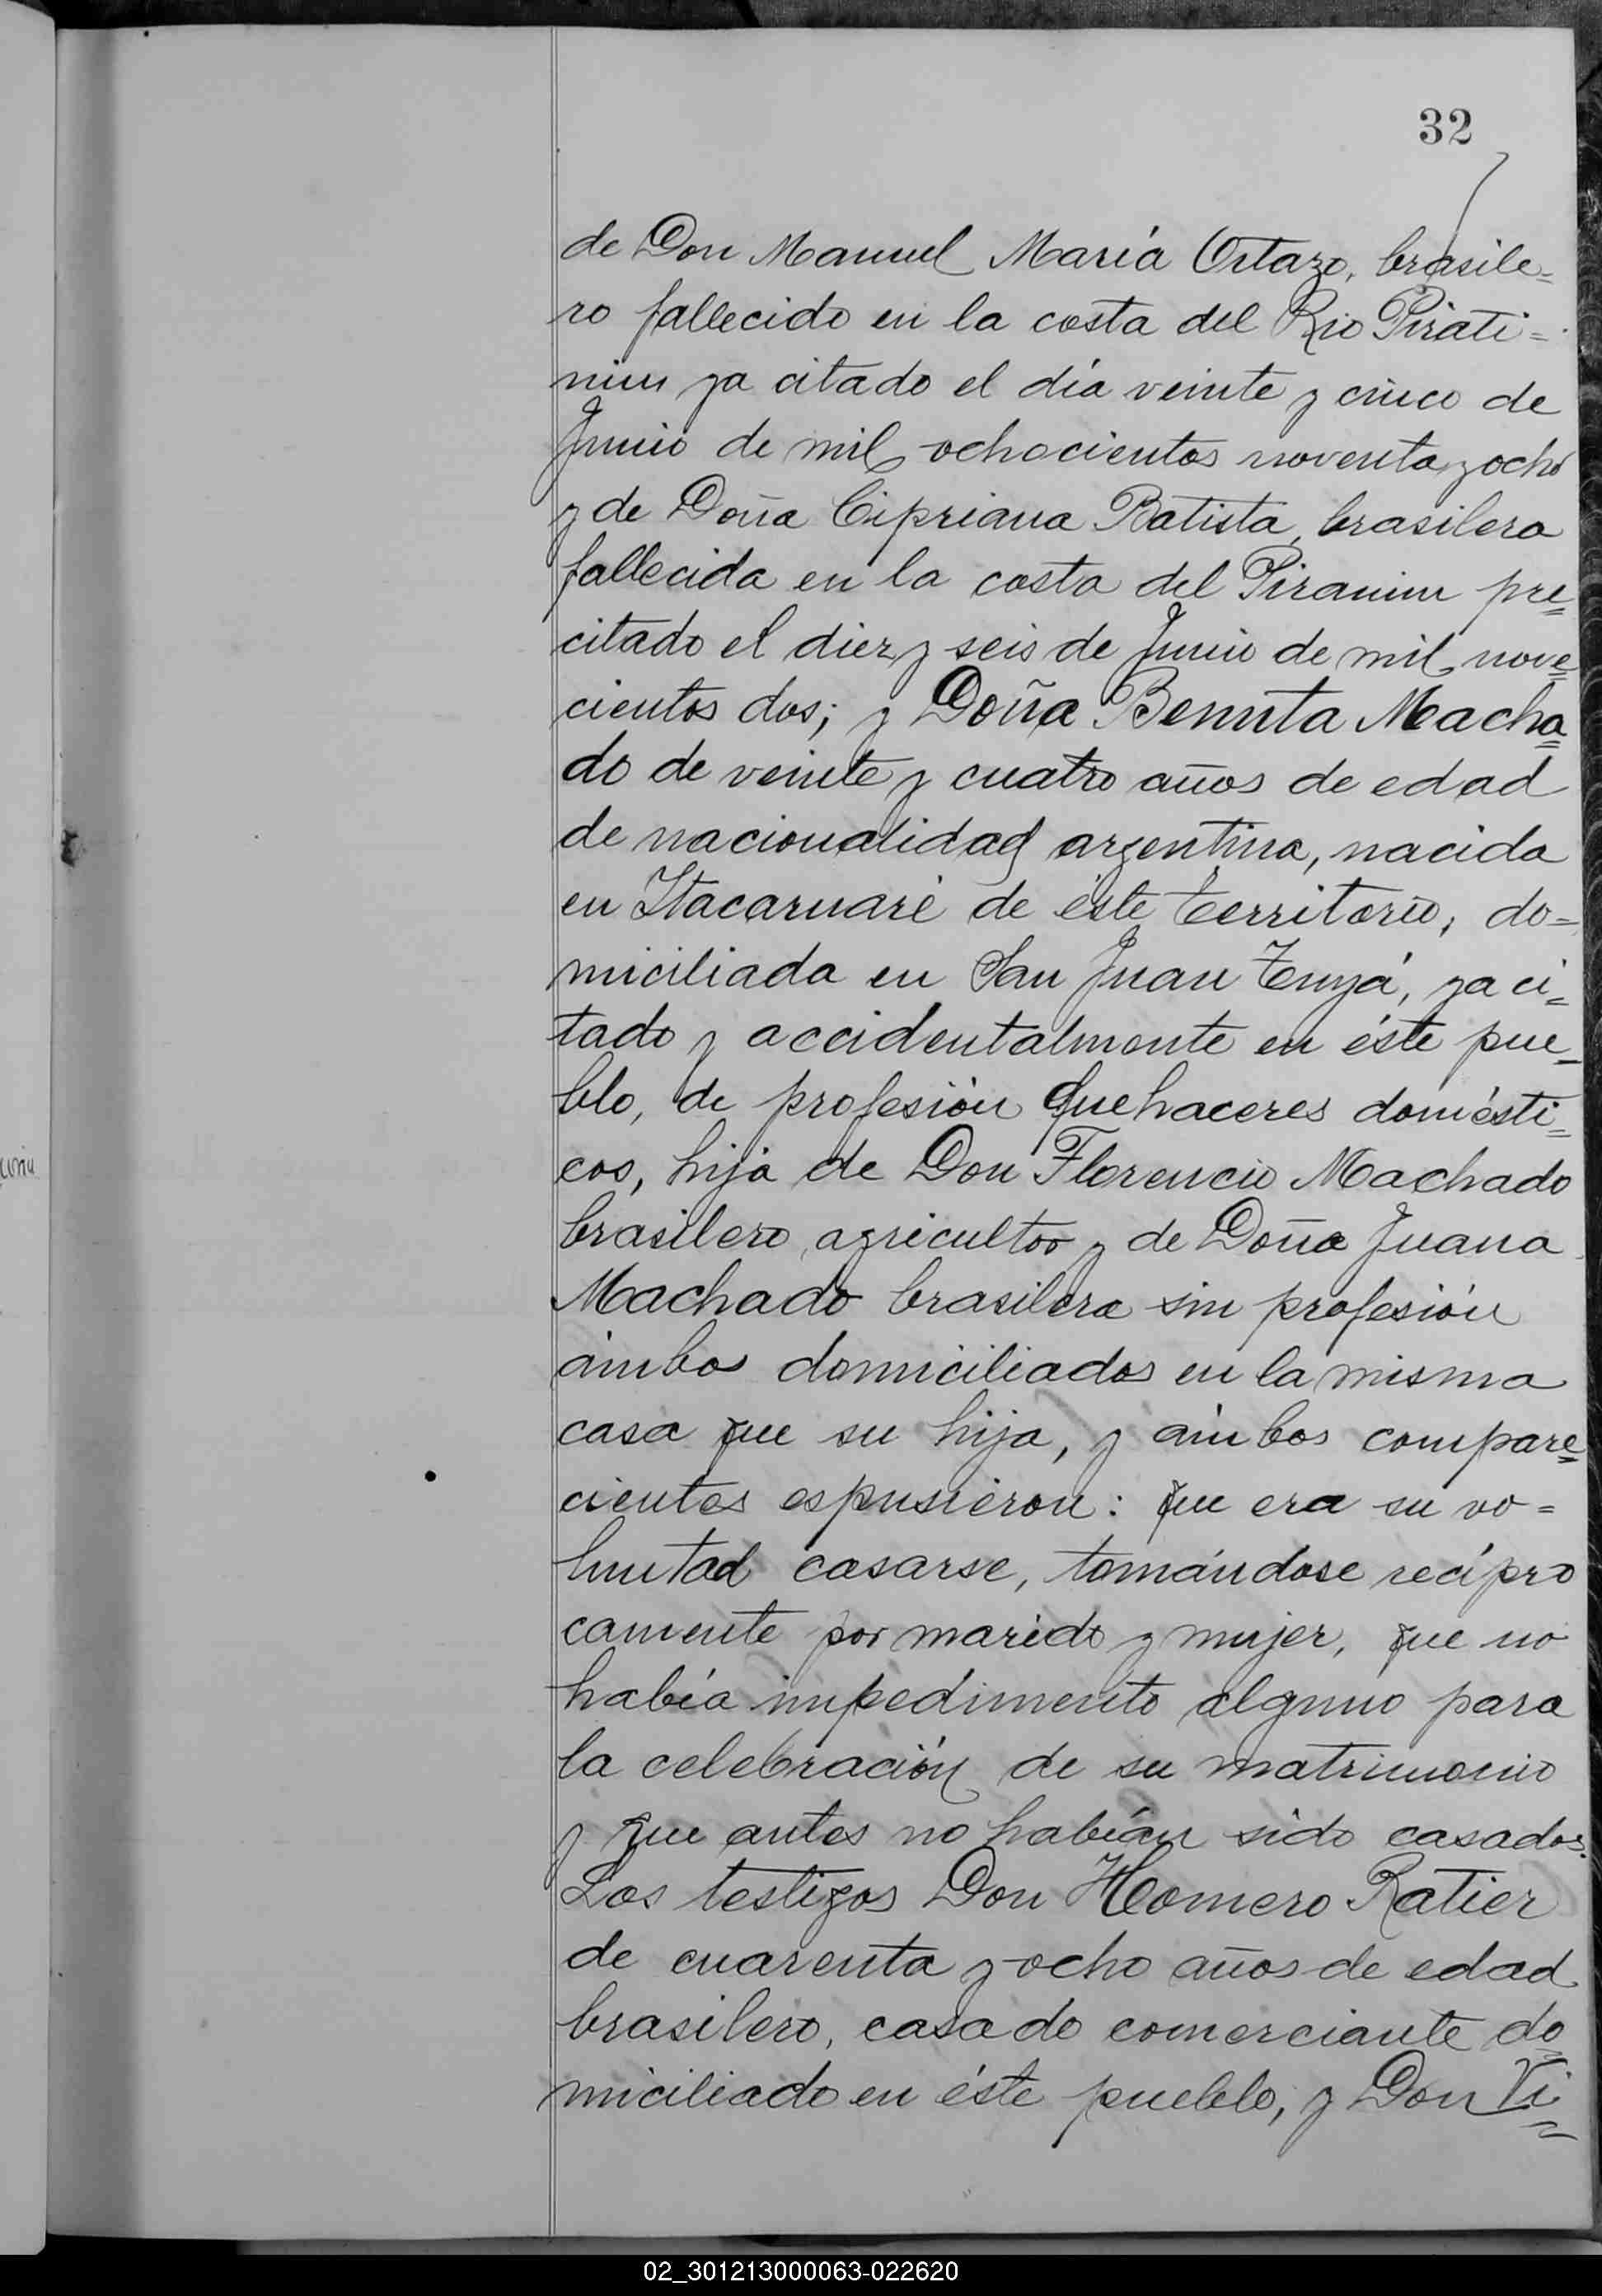 32
de Don Manuel María Ortazo, brasile=
ro fallecido en la costa del Rio Pirati=
nim ya citado el día veinte y cinco de
Junio de mil ochocientos noventa y ocho
y de Doña Cipriana Batista, brasilera
fallecida en la costa del Piranim pre=
citado el diez y seis de Junio de mil nove=
cientos dos; y Doña Benita Macha=
do de veinte y cuatro años de edad
de nacionalidad argentina, nacida
en Itacaruaré de éste territorio, do=
miciliada en San Juan Tuyá, ya ci=
tado y accidentalmente en éste pue=
blo, de profesión Quehaceres domésti=
cos, hija de Don Florencio Machado
brasilero, agricultor y de Doña Juana
Machado brasilera sin profesión
ámbos domiciliados en la misma
casa que su hija, y ámbos compare=
cientes espusieron: que era su vo=
luntad casarse, tomándose recípro
camente por marido y mujer, que no
había impedimento alguno para
la celebración de su matrimonio
y que antes no habían sido casados.
Los testigos Don Homero Ratier
de cuarenta y ocho años de edad
brasilero, casado comerciante do=
miciliado en éste pueblo, y Don Vi=
02_301213000063-022620